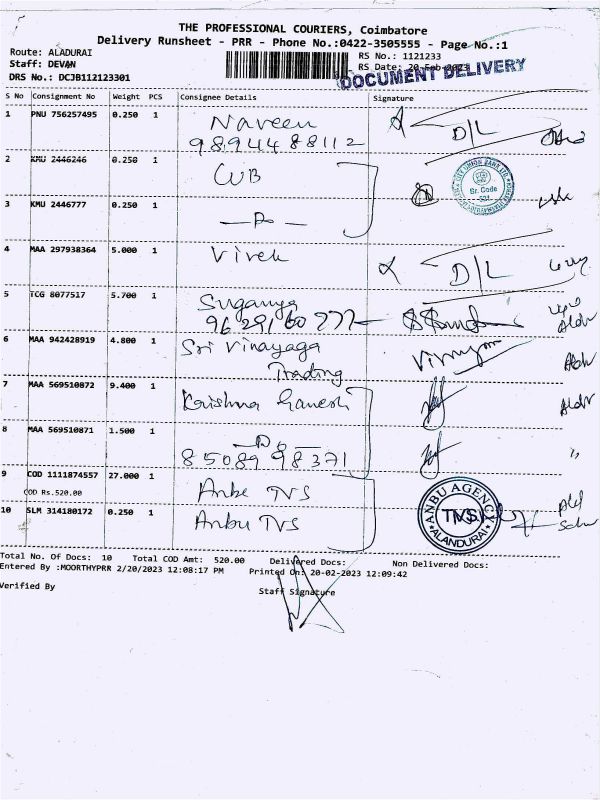 THE PROFESSIONAL COURIERS, Coimbatore
Delivery Runsheet - PRR - Phone No.:0422-3505555 - Page No.:1
Route: ALADURAI
Staff: DEVAN
DRS No.: DCJB112123301
RS No.: 1121233
RS Date: 20-Feb-2023
DOCUMENT DELIVERY
S No Consignment No Weight PCS Consignee Details Signature
1 PNU 756257495 0.250 1 Naveen D/L
9894488112
2 KMU 2446246 0.250 1 CUB
CITY UNION BANK LTD.
Br. Code
3 KMU 2446777 0.250 1
4 MAA 297938364 5.000 1 Vivek D/L
5 TCG 8077517 5.700 1 Suganya
6 MAA 942428919 4.800 1 Sri Vinayaga
Trading
7 MAA 569510872 9.400 1 Krishna Ganesh
8 MAA 569510871 1.500 1
8508998371
9 COD 1111874557 27.000 1 Anbu TVS
COD Rs.520.00
10 SLM 314180172 0.250 1 Anbu TVS
ANBU AGENCY
TVS
ALANDURAI
Total No. Of Docs: 10 Total COD Amt: 520.00 Delivered Docs: Non Delivered Docs:
Entered By :MOORTHYPRR 2/20/2023 12:08:17 PM Printed On: 20-02-2023 12:09:42
Verified By Staff Signature